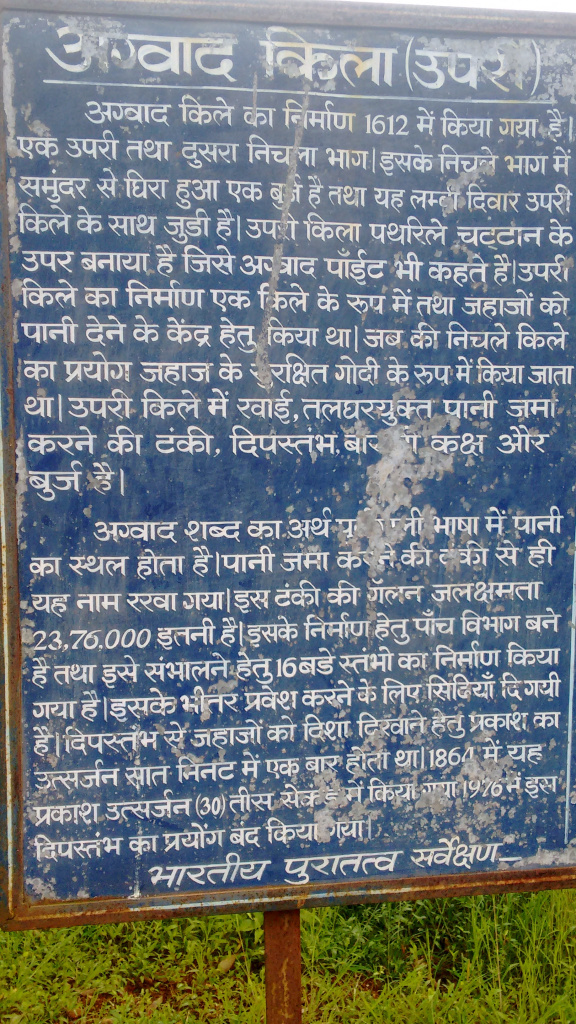 अग्वाद किला (उपरी)
अग्वाद किले का निर्माण 1612 में किया गया है।
एक उपरी तथा दुसरा निचला भाग। इसके निचले भाग में
समुंदर से घिरा हुआ एक बुर्ज है तथा यह लम्बी दिवार उपरी
किले के साथ जुडी है। उपरी किला पथरिले चट्टान के
उपर बनाया है जिसे अग्वाद पाँईट भी कहते है। उपरी
किले का निर्माण एक किले के रूप में तथा जहाजों को
पानी देने के केंद्र हेतु किया था। जब की निचले किले
का प्रयोग जहाज के सुरक्षित गोदी के रूप में किया जाता
था। उपरी किले में खाई, तलघरयुक्त पानी जमा
करने की टंकी, दिपस्तंभ, कक्ष और
बुर्ज है।
अग्वाद शब्द का अर्थ भाषा में पानी
का स्थल होता है। पानी जमा करने की टंकी से ही
यह नाम रखा गया। इस टंकी की गॅलन जलक्षमता
23,76,000 इतनी है। इसके निर्माण हेतु पाँच विभाग बने
है तथा इसे संभालने हेतु 16 बडे स्तंभो का निर्माण किया
गया है। इसके भीतर प्रवेश करने के लिए सिढियाँ दि गयी
है। दिपस्तंभ से जहाजों को दिशा दिखाने हेतु प्रकाश का
उत्सर्जन सात मिनट में एक बार होता था। 1864 में यह
प्रकाश उत्सर्जन (30) तीस सेकंड में किया गया 1976 में इस
दिपस्तंभ का प्रयोग बंद किया गया।
भारतीय पुरातत्व सर्वेक्षण